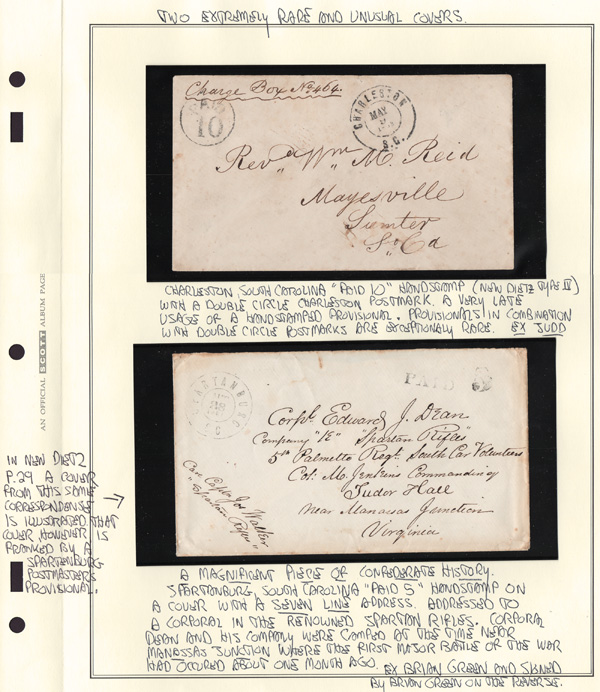 TWO EXTREMELY RARE AND UNUSUAL COVERS.
Charge Box No. 464.
PAID
10
CHARLESTON
MAY
S.C.
Revd Wm M. Reid
Mayesville
Sumter
So Ca
CHARLESTON, SOUTH CAROLINA "PAID 10" HANDSTAMP (NEW DIETZ TYPE II)
WITH A DOUBLE CIRCLE CHARLESTON POSTMARK. A VERY LATE
USAGE OF A HANDSTAMPED PROVISIONAL. PROVISIONALS IN COMBINATION
WITH DOUBLE CIRCLE POSTMARKS ARE EXCEPTIONALLY RARE. EX JUDD
AN OFFICIAL SCOTT ALBUM PAGE
SPARTANBURG
PAID 5
Corpl. Edward J. Dean
Company "K" "Spartan Rifles"
5th Palmetto Regt. South Car Volunteers
Col: M. Jenkins Commanding
Tudor Hall
near Manassas Junction
Virginia
Care Capt Jos Walker
"Spartan Rifles"
IN NEW DIETZ
P.29 A COVER
FROM THIS SAME
CORRESPONDENSE
IS ILLUSTRATED THAT
COVER, HOWEVER IS
FRANKED BY A
SPARTENBURG
POSTMASTERS
PROVISIONAL.
A MAGNIFICENT PIECE OF CONFEDERATE HISTORY.
SPARTENBURG, SOUTH CAROLINA "PAID 5" HANDSTAMP ON
A COVER WITH A SEVEN LINE ADDRESS. ADDRESSED TO
A CORPORAL IN THE RENOUNED SPARTAN RIFLES. CORPORAL
DEAN AND HIS COMPANY WERE CAMPED AT THE TIME NEAR
MANASSAS JUNCTION WHERE THE FIRST MAJOR BATTLE OF THE WAR
HAD OCCURED ABOUT ONE MONTH AGO. EX BRIAN GREEN AND SIGNED
BY BRIAN GREEN ON THE REVERSE.